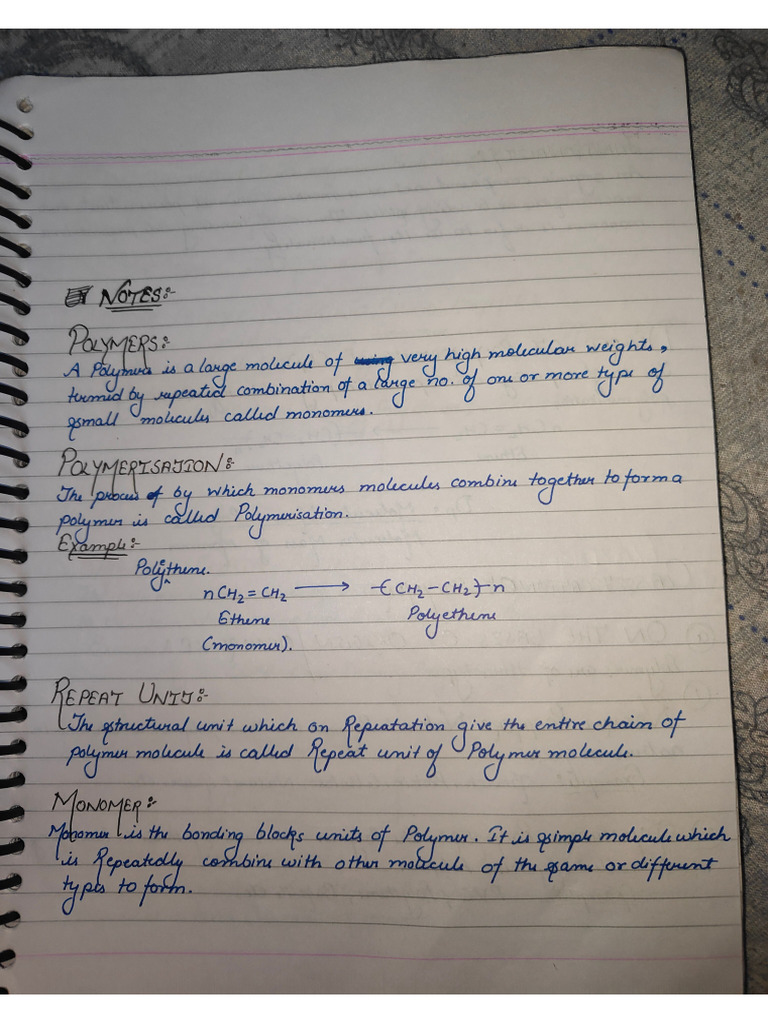 NOTES:-
POLYMERS:-
A Polymers is a large molecule of very high molecular weights,
termed by repeated combination of a large no. of one or more type of
small molecules called monomers.
POLYMERISATION:-
The process of by which monomers molecules combine together to form a
polymer is called Polymerisation.
Example:-
Polythene.
nCH₂=CH₂ ⟶ -(CH₂-CH₂)-n
Ethene Polyethene
(monomer).
REPEAT UNIT:-
The structural unit which on Repeatation give the entire chain of
polymer molecule is called Repeat unit of Polymer molecule.
MONOMER:-
Monomer is the bonding blocks units of Polymer. It is simple molecule which
is Repeatedly combine with other molecule of the same or different
types to form.